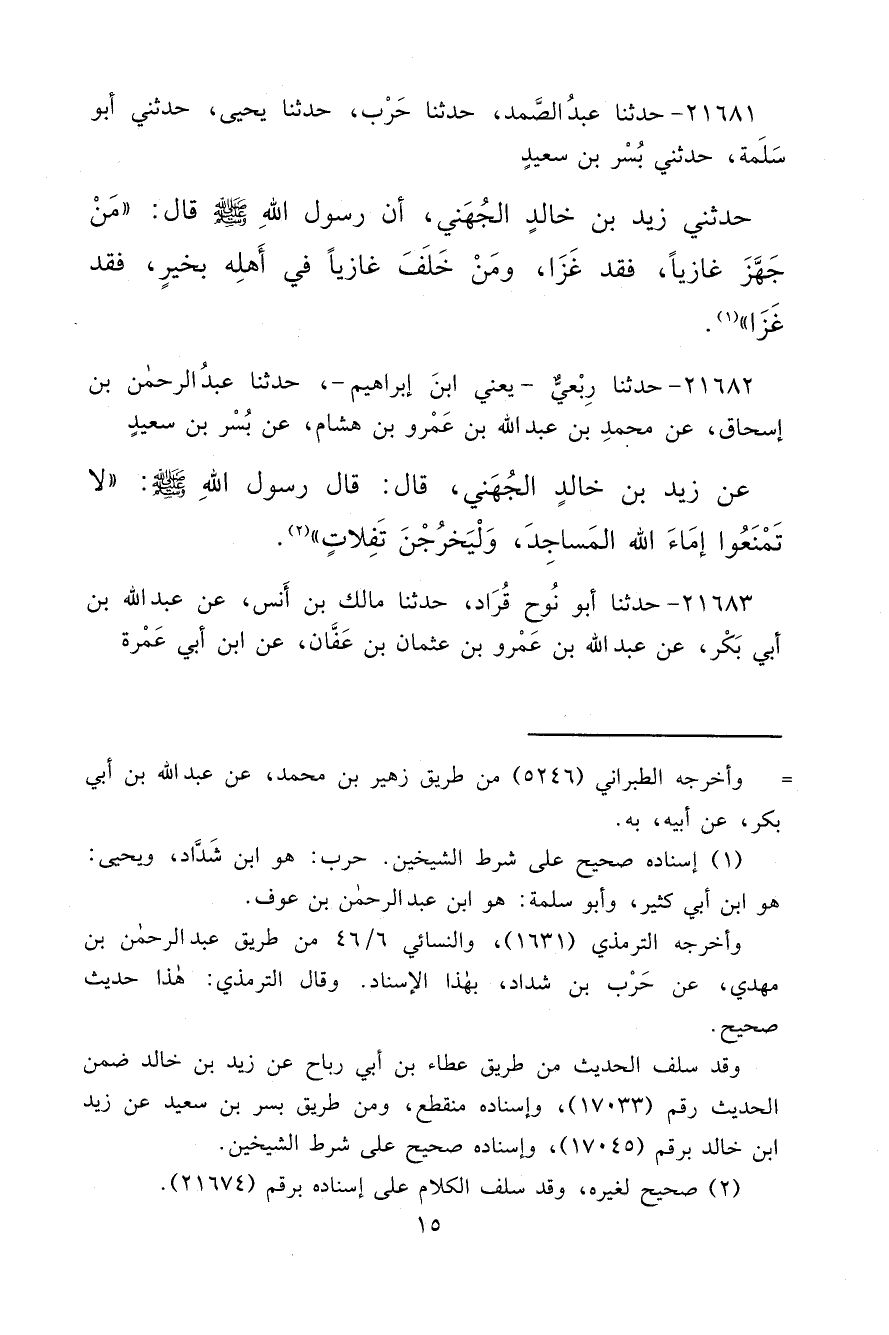 ٢١٦٨١- حدثنا عبدُ الصَّمد، حدثنا حَرْب، حدثنا يحيى، حدثني أبو
سَلَمة، حدثني بُسْر بن سعيدٍ
حدثني زيد بن خالدٍ الجُهَني، أن رسول اللهِ ﷺ قال: «مَنْ
جَهَّزَ غازياً، فقد غَزَا، ومَنْ خَلَفَ غازياً في أَهلِه بخيرٍ، فقد
غَزَا»(١).
٢١٦٨٢- حدثنا رِبْعيٌّ -يعني ابنَ إبراهيم-، حدثنا عبدُ الرحمٰن بن
إسحاق، عن محمدِ بن عبد الله بن عَمْرو بن هشام، عن بُسْر بن سعيدٍ
عن زيد بن خالدٍ الجُهَني، قال: قال رسول اللهِ ﷺ: «لا
تَمْنَعُوا إمَاءَ الله المَساجِدَ، وَلْيَخرُجْنَ تَفِلاتٍ»(٢).
٢١٦٨٣- حدثنا أبو نُوح قُرَاد، حدثنا مالك بن أَنس، عن عبد الله بن
أبي بَكْر، عن عبد الله بن عَمْرو بن عثمان بن عَفَّان، عن ابن أبي عَمْرة
= وأخرجه الطبراني (٥٢٤٦) من طريق زهير بن محمد، عن عبد الله بن أبي
بكر، عن أبيه، به.
(١) إسناده صحيح على شرط الشيخين. حرب: هو ابن شَدَّاد، ويحيى:
هو ابن أبي كثير، وأبو سلمة: هو ابن عبد الرحمٰن بن عوف.
وأخرجه الترمذي (١٦٣١)، والنسائي ٤٦/٦ من طريق عبد الرحمٰن بن
مهدي، عن حَرْب بن شداد، بهٰذا الإسناد. وقال الترمذي: هٰذا حديث
صحيح.
وقد سلف الحديث من طريق عطاء بن أبي رباح عن زيد بن خالد ضمن
الحديث رقم (١٧٠٣٣)، وإسناده منقطع، ومن طريق بسر بن سعيد عن زيد
ابن خالد برقم (١٧٠٤٥)، وإسناده صحيح على شرط الشيخين.
(٢) صحيح لغيره، وقد سلف الكلام على إسناده برقم (٢١٦٧٤).
١٥